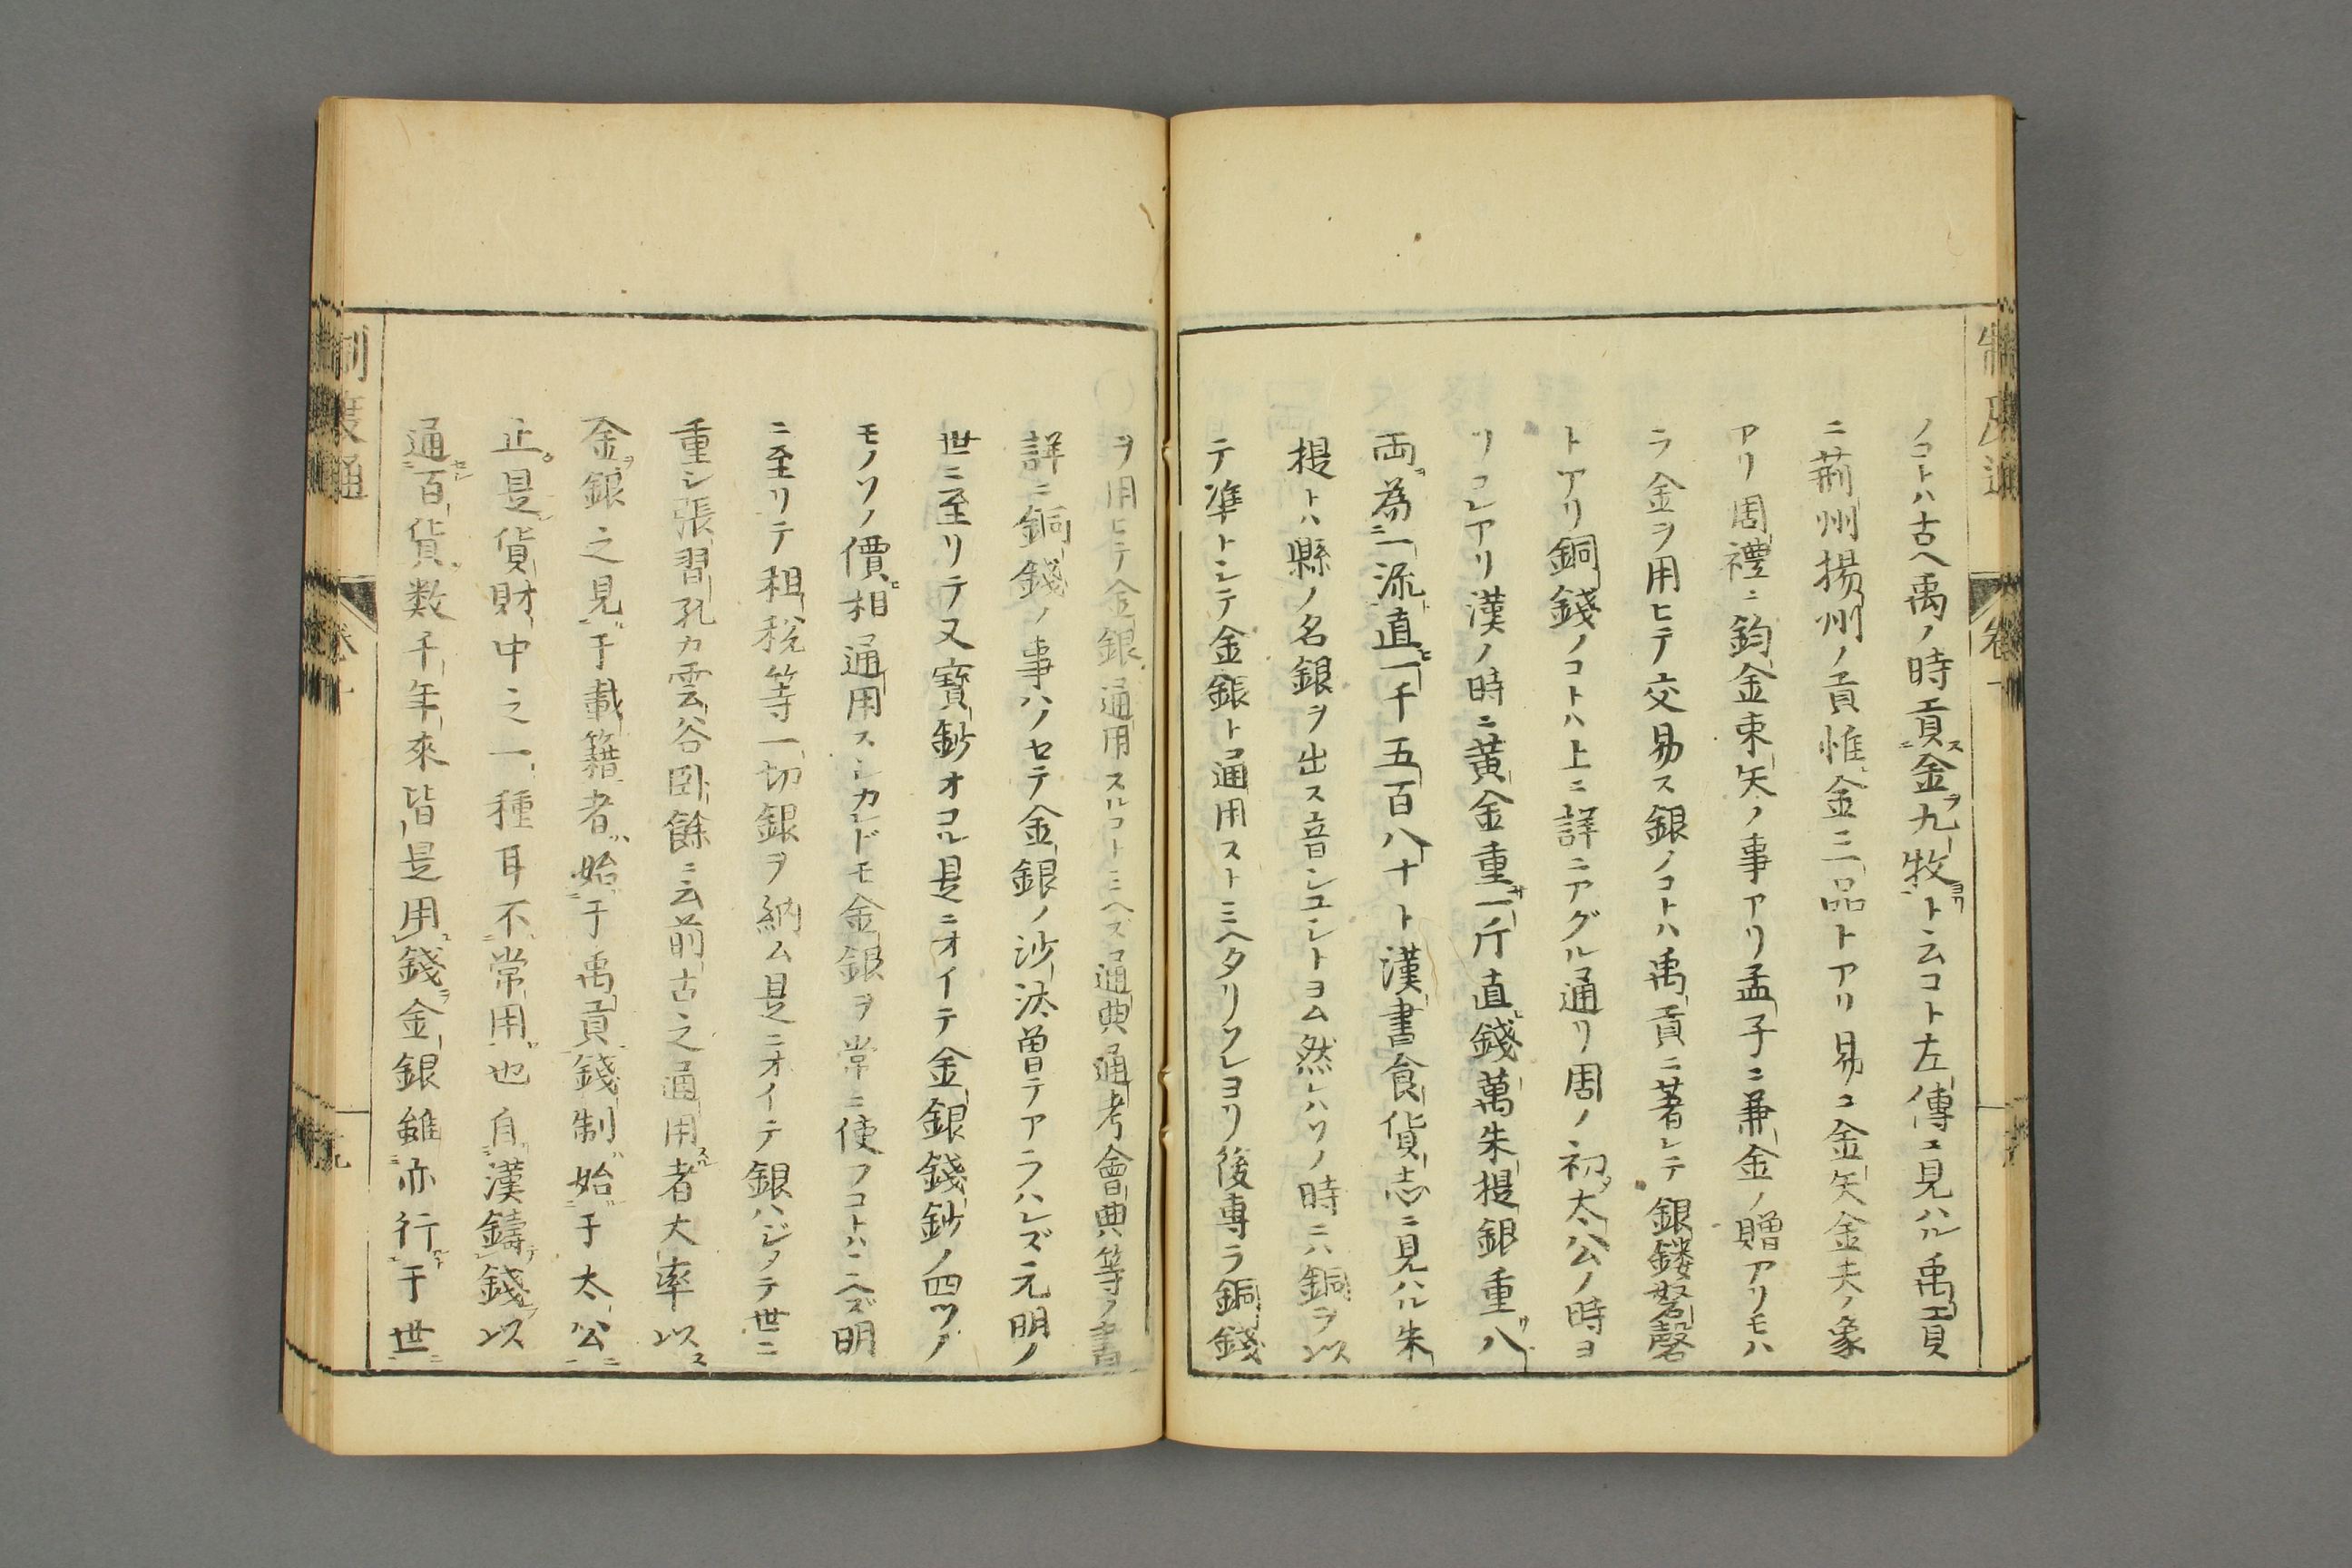 ノコトハ古ヘ禹ノ時貢金九牧ト云コト左傳ニ見ハル禹貢
ニ荊州揚州ノ貢惟金三品トアリ易ニ金矢金夫ノ象
アリ周禮ニ鈞金束矢ノ事アリ孟子ニ兼金ノ贈アリモハ
ラ金ヲ用ヒテ交易ス銀ノコトハ禹貢ニ著シテ銀鏤砮磬
トアリ銅錢ノコトハ上ニ詳ニアグル通リ周ノ初太公ノ時ヨ
リコレアリ漢ノ時ニ黃金重一斤直錢萬朱提銀重八
両為一流直一千五百八十ト漢書食貨志ニ見ハル朱
提トハ縣ノ名銀ヲ出ス音シユシトヨム然レハソノ時ニハ銅ヲ以
テ準トシテ金銀ト通用ストミヘタリソレヨリ後専ラ銅錢
ヲ用ヒテ金銀通用スルコトミヘズ通典通考會典等ノ書
詳ニ銅錢ノ事ハノセテ金銀ノ沙汰曽テアラハレズ元明ノ
世ニ至リテ又寳鈔オコル是ニオイテ金銀錢鈔ノ四ツノ
モノソノ價相通用スシカレドモ金銀ヲ常ニ使フコトハミヘズ明
ニ至リテ租税等一切銀ヲ納ム是ニオイテ銀ハジメテ世ニ
重シ張習孔カ雲谷卧餘ニ云前古之通用者大率以
金銀之見于載籍者始于禹貢錢制始于太公
止是貨財中之一種耳不常用也自漢鑄錢以
通百貨数千年來皆是用錢金銀雖亦行于世
制度通
卷十